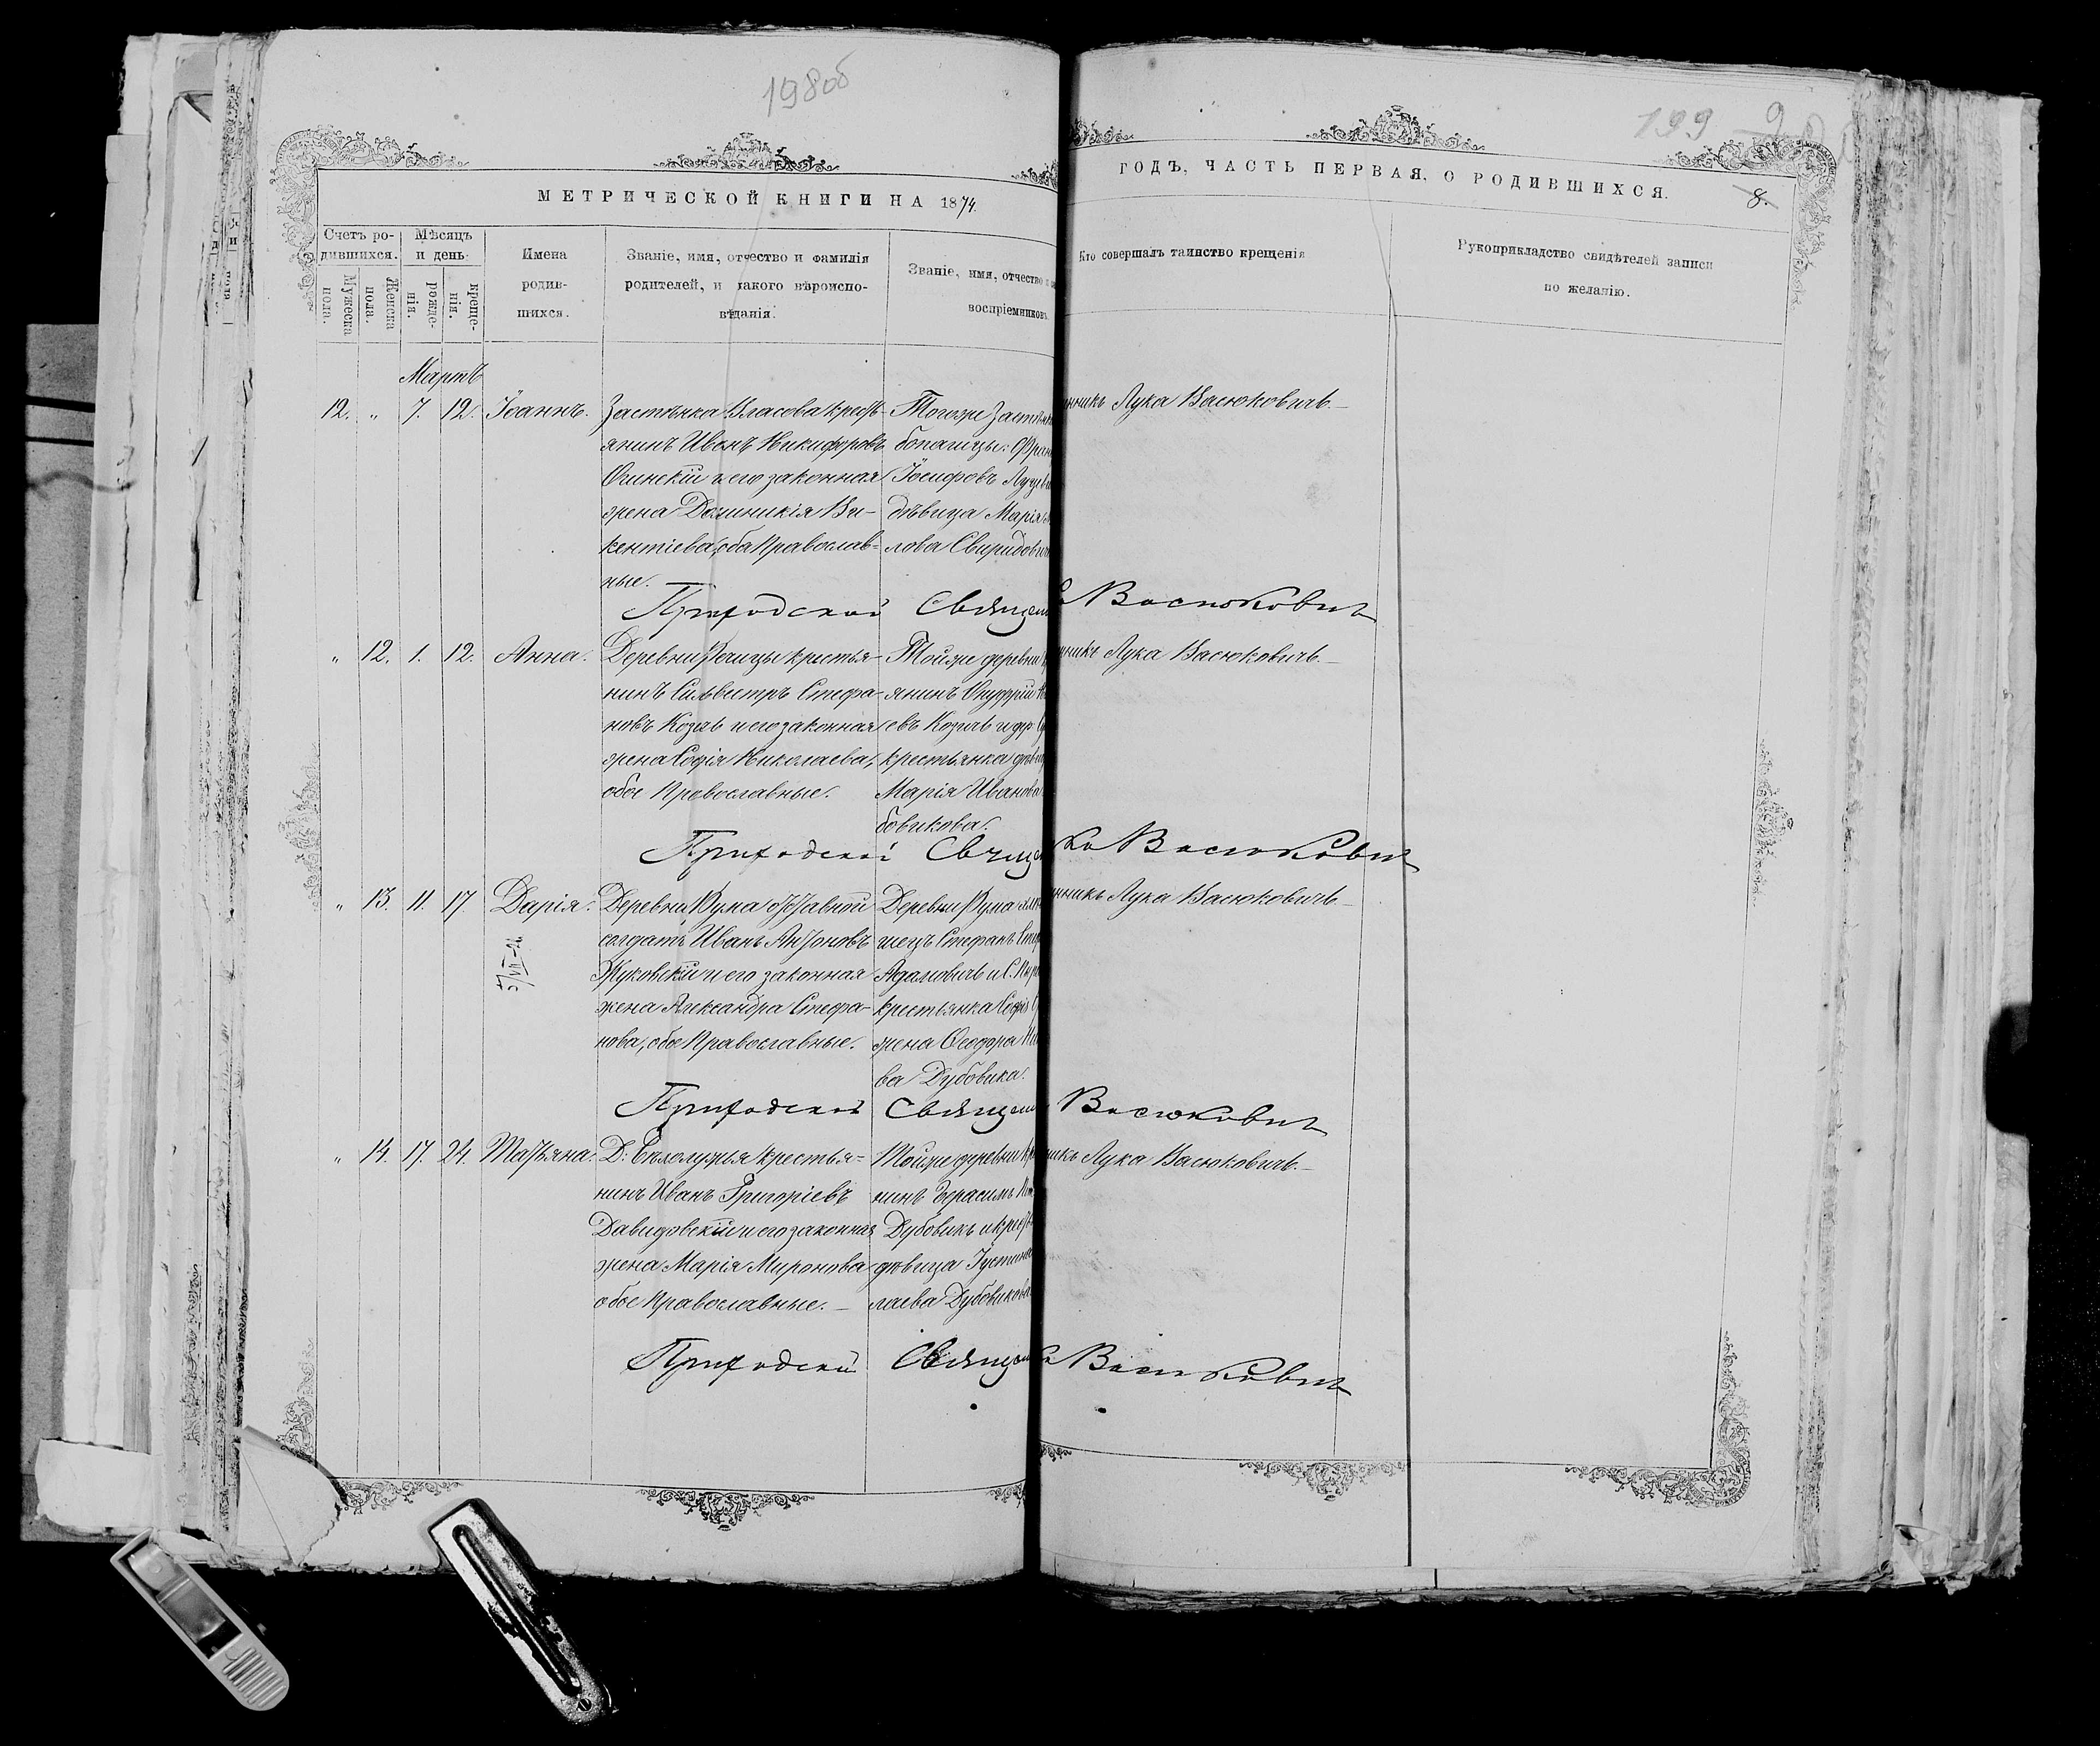 198об
199
МЕТРИЧЕСКОЙ КНИГИ НА 1874.
ГОДЪ, ЧАСТЬ ПЕРВАЯ, О РОДИВШИХСЯ.
8.
Счетъ ро-
дившихся.
Мужеска
пола.
Женска
пола.
Мѣсяцъ
и день
рожде-
нія.
креще-
нія.
Имена
родив-
шихся.
Званіе, имя, отчество и фамилія
родителей, и какого вѣроиспо-
вѣданія.
Званіе, имя, отчество
воспріемниковъ.
Кто совершалъ таинство крещенія
Рукоприкладство свидѣтелей записи
по желанію.
Мартъ
12. „ 7. 12. Іоаннъ.
Застѣнка Власова кресть-
янинъ Иванъ Никифоровъ
Огинскій и его законная
жена Доминикія Ви-
кентіева, оба Православ-
ные.
Тогоже
Іосифовъ
дѣвица Марія
лова
нникъ Лука Васюковичъ. —
Приходской Священ
Васюковичъ
„ 12. 1. 12. Анна.
Деревни Речицы крестья-
нинъ Сильвестръ Стефа-
новъ Козелъ и его законная
жена Софія Николаева,
обое Православные.
Тойже деревни
янинъ Онуфрій
евъ
крестьянка
Марія Иванова
бовикова.
нникъ Лука Васюковичъ. —
Приходской Свящ
ка Васюковичъ
„ 13. 11. 17. Дарія.
Деревни Рума отставной
солдатъ Иванъ Антоновъ
Жуковскій и его законная
жена Александра Стефа-
нова, обое Православные.
Деревни Рума
Стефанъ
Адамовичъ и С.
крестьянка Софія
жена Ѳеодора
ва Дубовика.
нникъ Лука Васюковичъ —
Приходской Священ
Васюковичъ
„ 14. 17. 24. Татьяна.
Д: Бѣлолужья крестья-
нинъ Иванъ Григоріевъ
Давидовскій и его законная
жена Марія Миронова
обое Православные. —
Тойже деревни
нинъ Герасимъ
Дубовикъ и
дѣвица Іустина
лаева Дубовикова
никъ Лука Васюковичъ. —
Приходской Священ
Васюковичъ